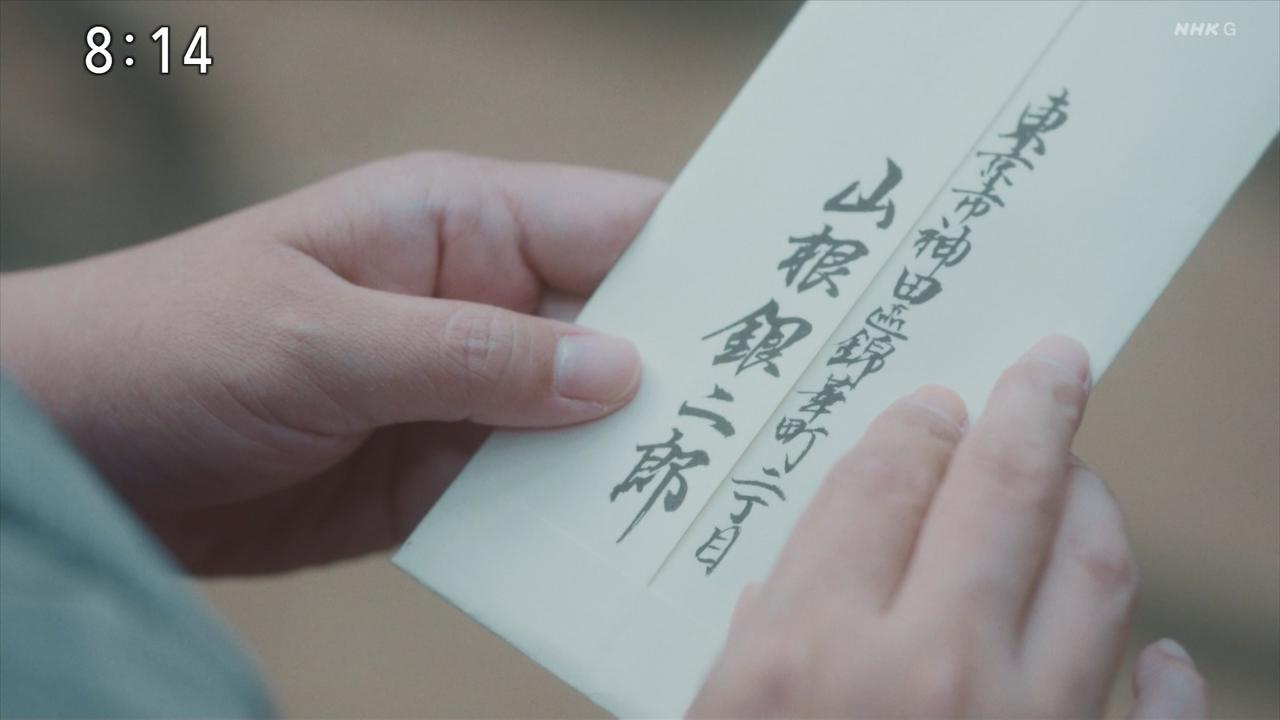 8:14
NHK G
東京市神田區錦華町二丁目
山根銀二郎